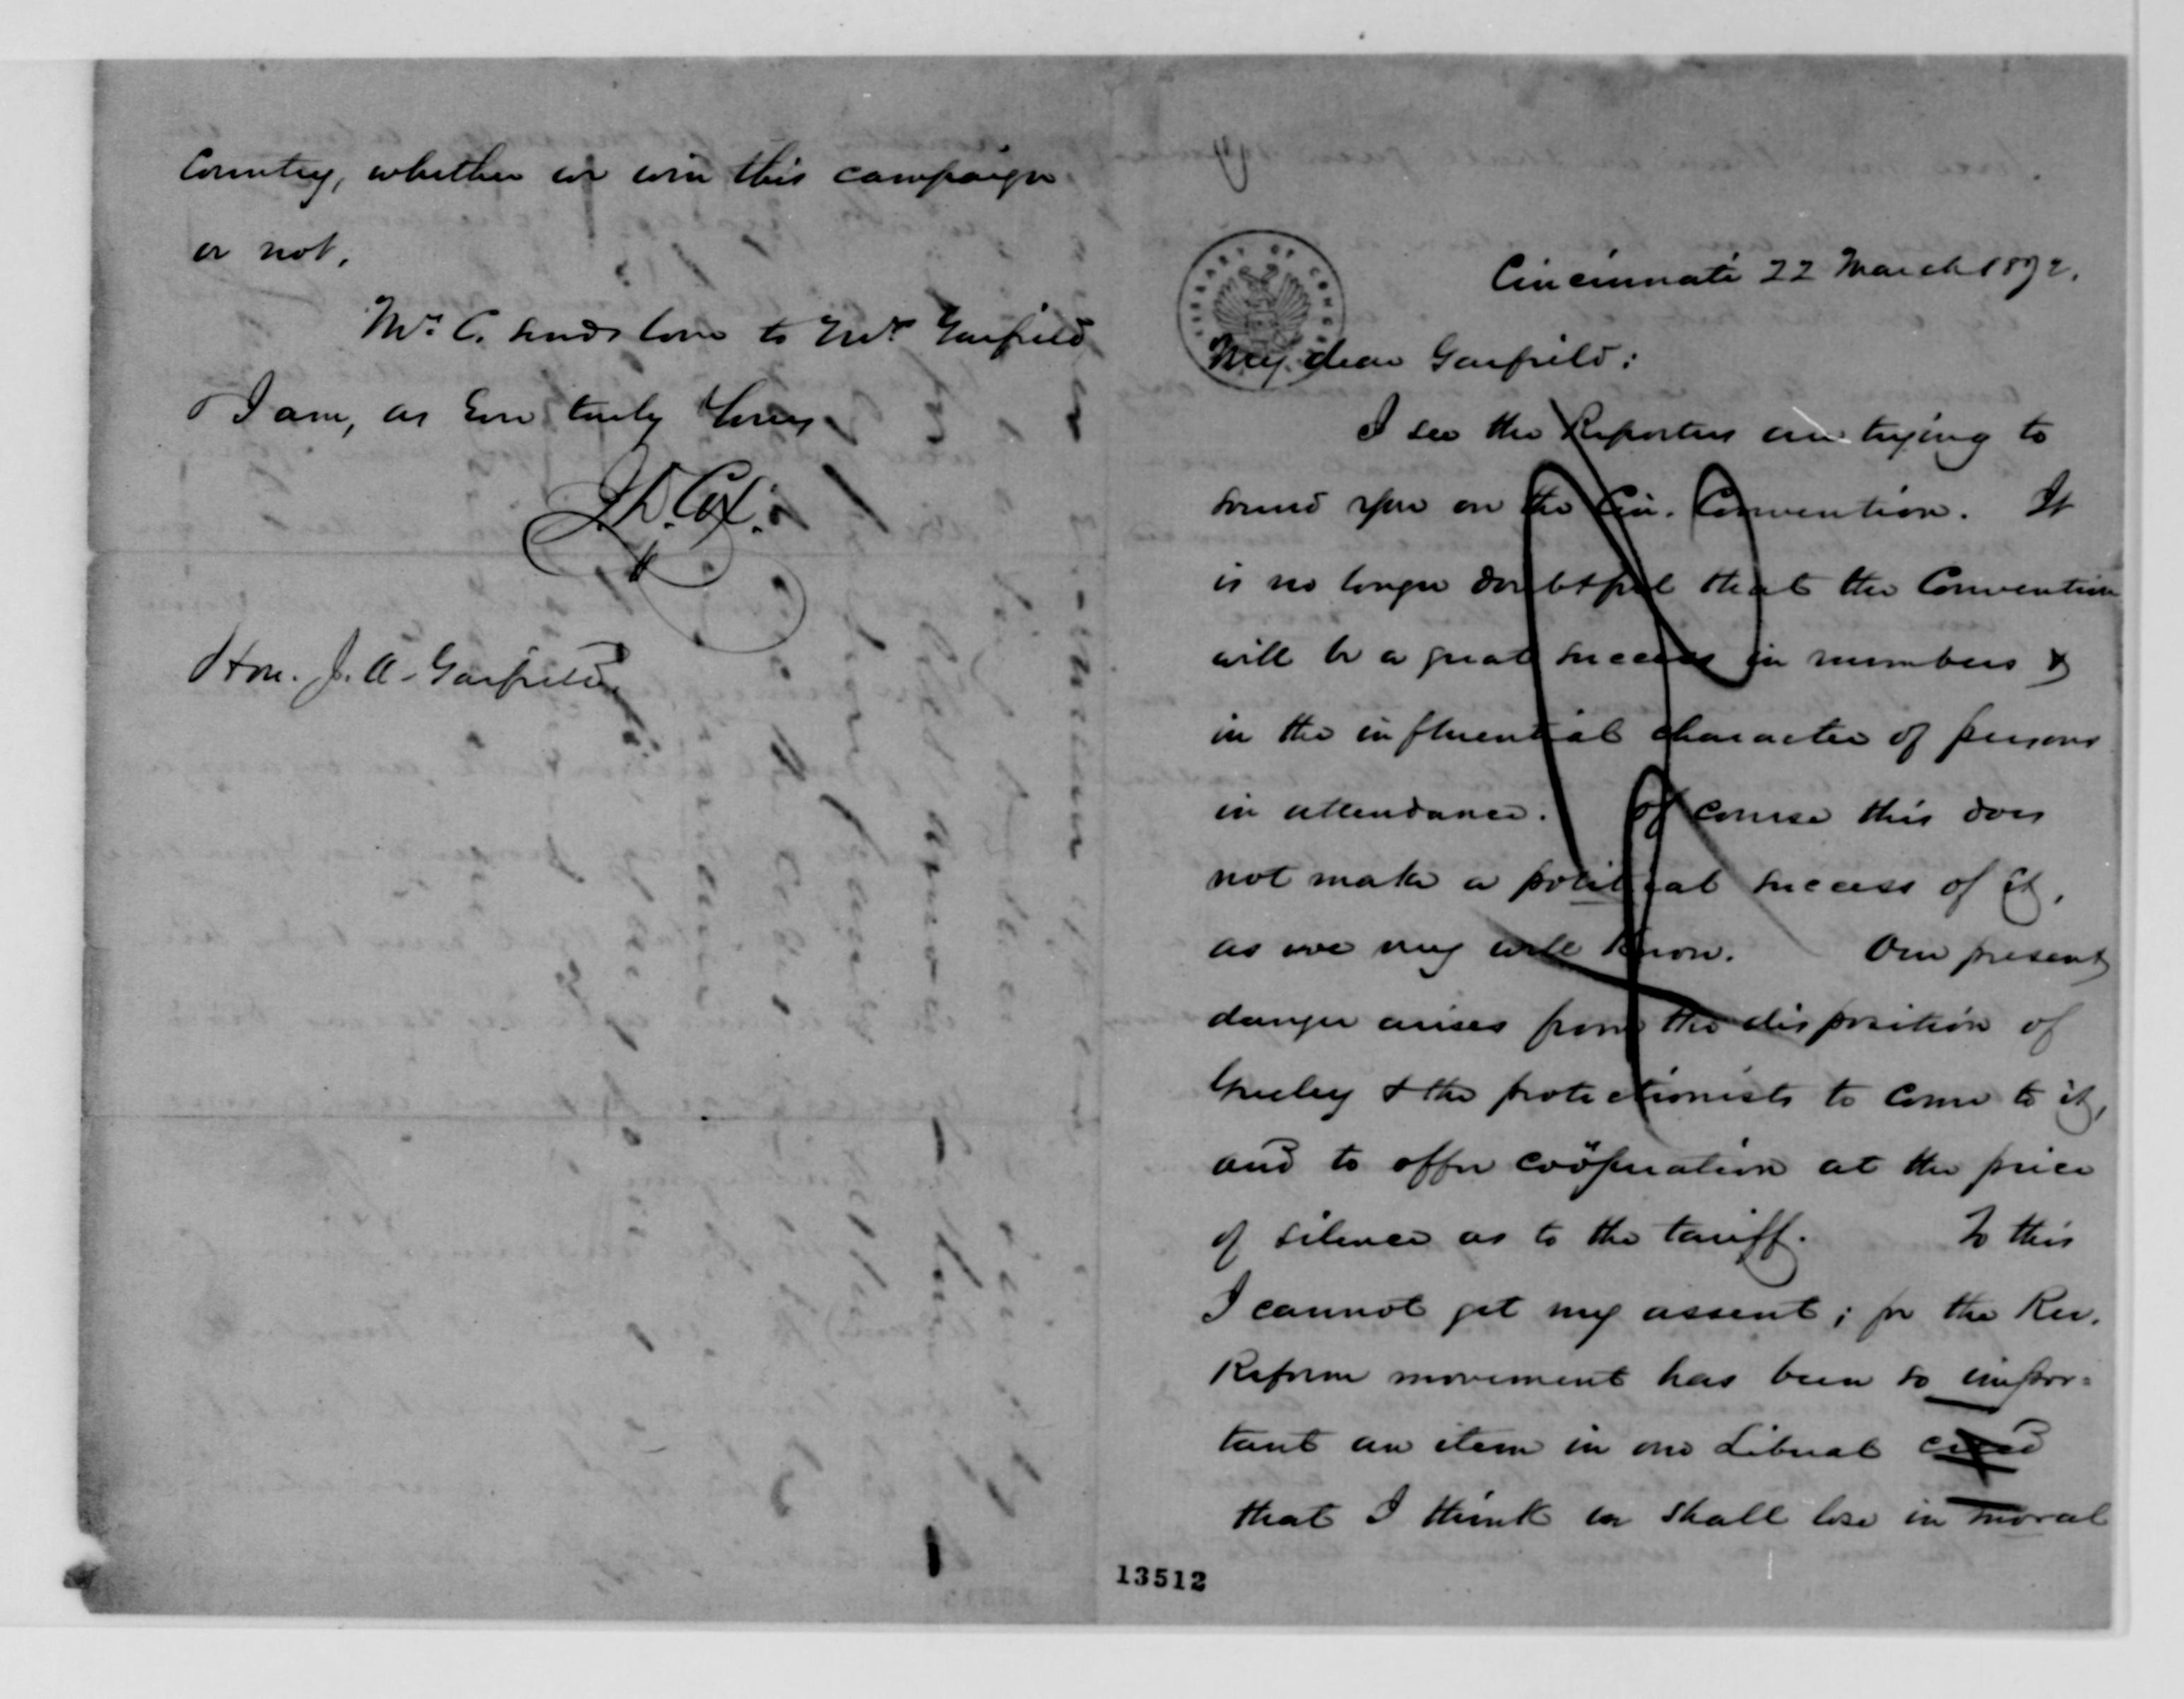 Country, whether we win this campaign
or not.
Mrs C. sends love to Mrs Garfield
I am, as Ever truly Yours
J. D. Cox.
Hon. J. A. Garfield
LIBRARY OF CONGRESS
Cincinnati 22 March 1872.
My dear Garfield:
I see the Reporters are trying to
sound you on the Cin. Convention. It
is no longer doubtful that the Convention
will be a great success in numbers &
in the influential character of persons
in attendance. Of course this does
not make a political success of it,
as we may well know. Our present
danger arises from the disposition of
Greeley & the protectionists to come to it,
and to offer coöperation at the price
of silence as to the tariff. To this
I cannot get my assent; for the Rev.
Reform movement has been so impor=
tant an item in our Liberal creed
that I think we shall lose in moral
13512